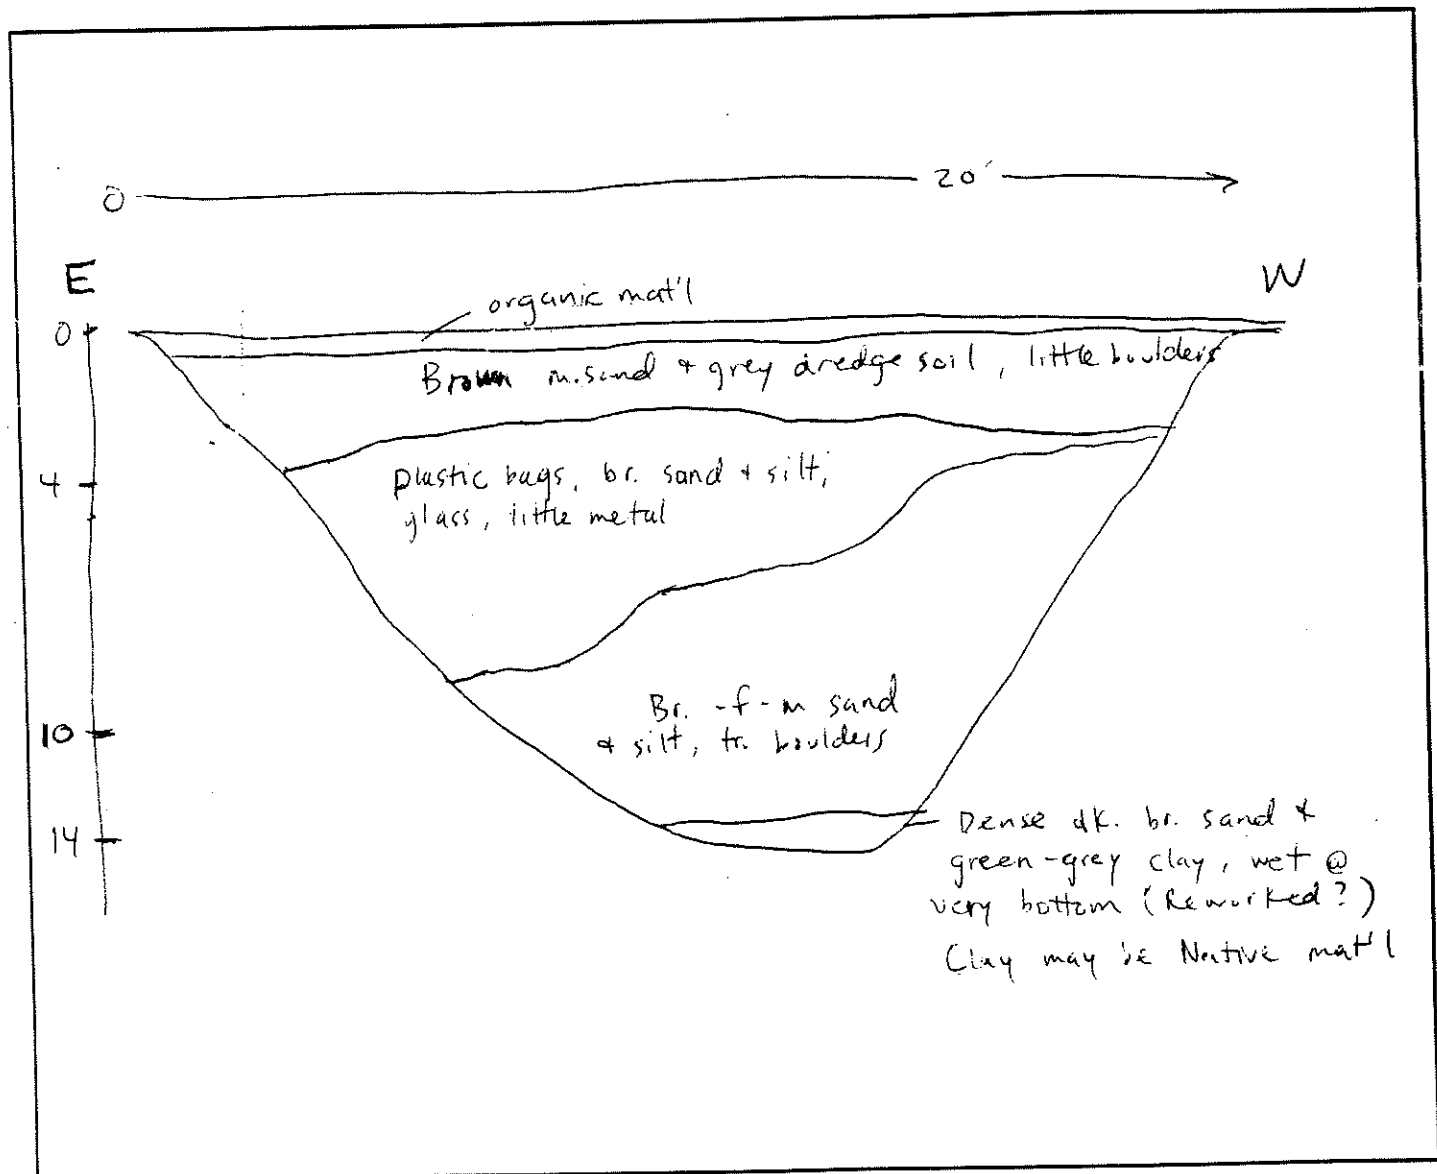 0 20'
E W
organic mat'l
0
Brown m. sand & grey dredge soil, little boulders
4
plastic bags, br. sand & silt,
glass, little metal
Br. -f-m sand
& silt, tr. boulders
10
14
Dense dk. br. sand &
green-grey clay, wet @
very bottom (Reworked?)
Clay may be Native mat'l